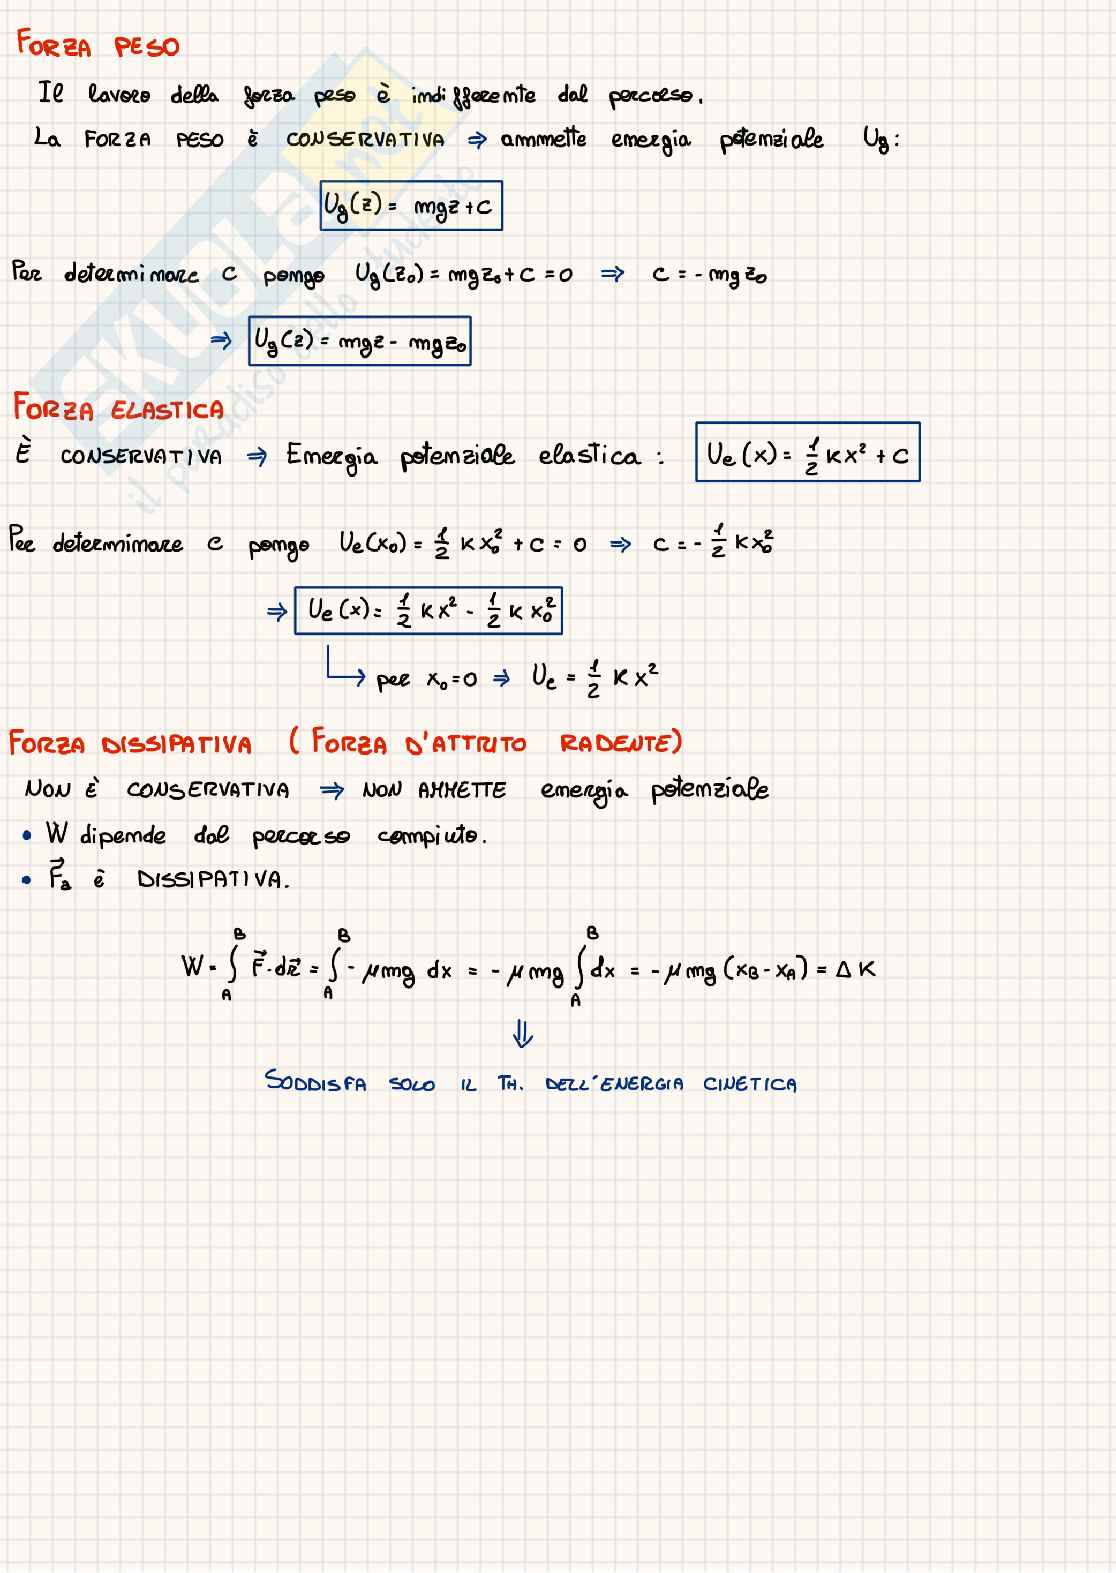 FORZA PESO
Il lavoro della forza peso è indifferente dal percorso.
La FORZA PESO è CONSERVATIVA ⇒ ammette energia potenziale Ug:
Ug(z) = mgz + C
Per determinare C pongo Ug(z₀) = mgz₀ + C = 0 ⇒ C = - mgz₀
⇒ Ug(z) = mgz - mgz₀
FORZA ELASTICA
È CONSERVATIVA ⇒ Energia potenziale elastica : Ue(x) = 1/2 Kx² + C
Per determinare C pongo Ue(x₀) = 1/2 Kx₀² + C = 0 ⇒ C = - 1/2 Kx₀²
⇒ Ue(x) = 1/2 Kx² - 1/2 Kx₀²
↳ per x₀ = 0 ⇒ Ue = 1/2 Kx²
FORZA DISSIPATIVA (FORZA D'ATTRITO RADENTE)
NON È CONSERVATIVA ⇒ NON AMMETTE energia potenziale
• W dipende dal percorso compiuto.
• F⃗a è DISSIPATIVA.
W = ∫_A^B F⃗·dr⃗ = ∫_A^B - μmg dx = - μmg ∫_A^B dx = - μmg (xB - xA) = ΔK
⇓
SODDISFA SOLO IL TH. DELL'ENERGIA CINETICA
SKUOLA.net
il paradiso dello studente